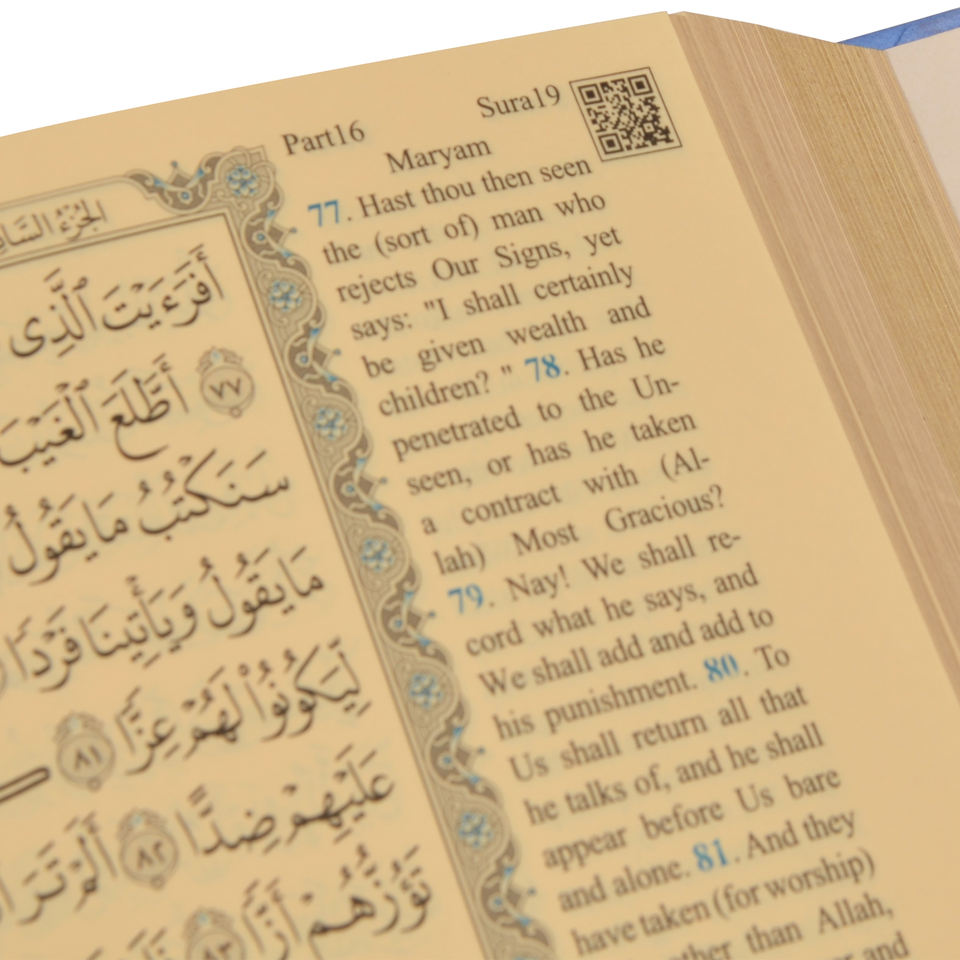 Part16 Sura19
Maryam
77. Hast thou then seen
the (sort of) man who
rejects Our Signs, yet
says: "I shall certainly
be given wealth and
children? " 78. Has he
penetrated to the Un-
seen, or has he taken
a contract with (Al-
lah) Most Gracious?
79. Nay! We shall re-
cord what he says, and
We shall add and add to
his punishment. 80. To
Us shall return all that
he talks of, and he shall
appear before Us bare
and alone. 81. And they
have taken (for worship)
other than Allah,
and
الجزء
أَفَرَءَيْتَ ٱلَّذِى
٧٧ أَطَّلَعَ ٱلْغَيْبَ
سَنَكْتُبُ مَا يَقُولُ
مَا يَقُولُ وَيَأْتِينَا فَرْدًا
لِّيَكُونُوا۟ لَهُمْ عِزًّا ٨١
عَلَيْهِمْ ضِدًّا ٨٢ أَلَمْ تَرَ
تَؤُزُّهُمْ أَزًّا ٨٣